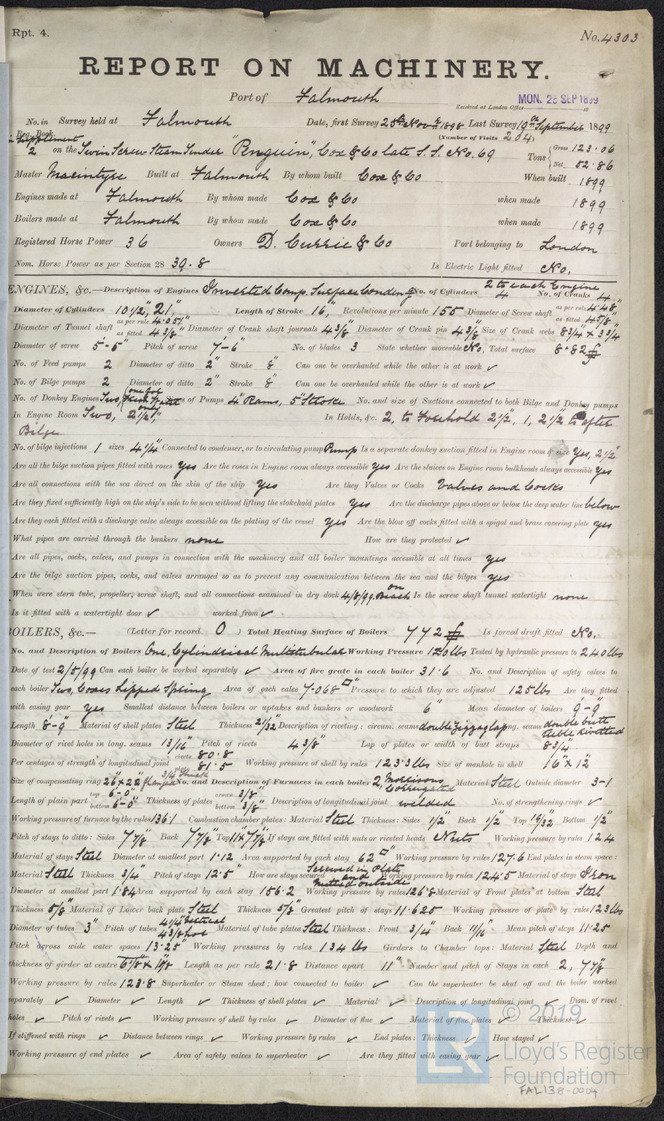 Rpt. 4.
No. 4303
REPORT ON MACHINERY.
Port of Falmouth
Received at London Office MON. 25 SEP 1899
No. in Survey held at Falmouth Date, first Survey 28th Novr 1898 Last Survey 19th September 1899
Reg. Book. (Number of Visits 204)
in Supplement
2 on the Twin Screw Steam Tender "Penguin", Cox & Co late S.S. No. 69 Tons Gross 123.06 Net 52.86
Master Macintyre Built at Falmouth By whom built Cox & Co When built 1899
Engines made at Falmouth By whom made Cox & Co when made 1899
Boilers made at Falmouth By whom made Cox & Co when made 1899
Registered Horse Power 36 Owners D. Currie & Co Port belonging to London
Nom. Horse Power as per Section 28 39.8 Is Electric Light fitted No.
ENGINES, &c.—Description of Engines Inverted Comp. Surface Condensing No. of Cylinders 2 to each Engine 4 No. of Cranks 4
Diameter of Cylinders 10½", 21" Length of Stroke 16" Revolutions per minute 155 Diameter of Screw shaft as per rule 4.48" as fitted 4 5/8"
Diameter of Tunnel shaft as per rule 4.057" as fitted 4 3/8" Diameter of Crank shaft journals 4 3/8" Diameter of Crank pin 4 3/8" Size of Crank webs 8 3/4" x 3 3/4"
Diameter of screw 5'-6" Pitch of screw 7'-6" No. of blades 3 State whether moveable No. Total surface 8.82
No. of Feed pumps 2 Diameter of ditto 2" Stroke 8" Can one be overhauled while the other is at work ✓
No. of Bilge pumps 2 Diameter of ditto 2" Stroke 8" Can one be overhauled while the other is at work ✓
No. of Donkey Engines Two, (one for fresh water only) of Pumps 4" Rams, 5" Stroke No. and size of Suctions connected to both Bilge and Donkey pumps
In Engine Room Two, 2½" In Holds, &c. 2, to Forehold 2½", 1, 2½" to after
Bilge
No. of bilge injections 1 sizes 4¼" Connected to condenser, or to circulating pump Pump Is a separate donkey suction fitted in Engine room & size Yes, 2½"
Are all the bilge suction pipes fitted with roses Yes Are the roses in Engine room always accessible Yes Are the sluices on Engine room bulkheads always accessible Yes
Are all connections with the sea direct on the skin of the ship Yes Are they Valves or Cocks Valves and Cocks
Are they fixed sufficiently high on the ship's side to be seen without lifting the stokehold plates Yes Are the discharge pipes above or below the deep water line below
Are they each fitted with a discharge valve always accessible on the plating of the vessel Yes Are the blow off cocks fitted with a spigot and brass covering plate Yes
What pipes are carried through the bunkers none How are they protected ✓
Are all pipes, cocks, valves, and pumps in connection with the machinery and all boiler mountings accessible at all times Yes
Are the bilge suction pipes, cocks, and valves arranged so as to prevent any communication between the sea and the bilges Yes
When were stern tube, propeller, screw shaft, and all connections examined in dry dock 4/8/99. on Beach Is the screw shaft tunnel watertight none
Is it fitted with a watertight door ✓ worked from ✓
BOILERS, &c.— (Letter for record O) Total Heating Surface of Boilers 772 Is forced draft fitted No.
No. and Description of Boilers One, Cylindrical Multitubular Working Pressure 120 lbs Tested by hydraulic pressure to 240 lbs
Date of test 2/5/99 Can each boiler be worked separately ✓ Area of fire grate in each boiler 31.6 No. and Description of safety valves to
each boiler Two, Coxes Lipped Spring Area of each valve 7.068 Pressure to which they are adjusted 125 lbs Are they fitted
with easing gear Yes Smallest distance between boilers or uptakes and bunkers or woodwork 6" Mean diameter of boilers 9'-9"
Length 8'-9" Material of shell plates Steel Thickness 21/32" Description of riveting: circum. seams double zigzag lap long. seams double butts treble rivetted
Diameter of rivet holes in long. seams 13/16" Pitch of rivets 4 3/8" Lap of plates or width of butt straps 8 3/4"
Per centages of strength of longitudinal joint rivets 80.8 plate 81.5 Working pressure of shell by rules 123.3 lbs Size of manhole in shell 16" x 12"
Size of compensating ring 26" x 22" flanged No. and Description of Furnaces in each boiler 2, Morisons Corrugated Material Steel Outside diameter 3'-1"
Length of plain part top 6'-0" bottom 6'-0" Thickness of plates crown 3/8" bottom 3/8" Description of longitudinal joint welded No. of strengthening rings ✓
Working pressure of furnace by the rules 136 Combustion chamber plates: Material Steel Thickness: Sides 1/2" Back 1/2" Top 19/32" Bottom 1/2"
Pitch of stays to ditto: Sides 7 7/8" Back 7 7/8" Top If stays are fitted with nuts or riveted heads Nuts Working pressure by rules 124
Material of stays Steel Diameter at smallest part 1.12 Area supported by each stay 62 Working pressure by rules 127.6 End plates in steam space:
Material Steel Thickness 3/4" Pitch of stays 12.5" How are stays secured Screwed in Plate and Nutted outside Working pressure by rules 124.5 Material of stays Iron
Diameter at smallest part 1.84 Area supported by each stay 156.2 Working pressure by rules 126.8 Material of Front plates at bottom Steel
Thickness 5/8" Material of Lower back plate Steel Thickness 5/8" Greatest pitch of stays 11.625 Working pressure of plate by rules 123 lbs
Diameter of tubes 3" Pitch of tubes Material of tube plates Steel Thickness: Front 3/4" Back 11/16" Mean pitch of stays 11.25
Pitch across wide water spaces 13.25" Working pressures by rules 134 lbs Girders to Chamber tops: Material Steel Depth and
thickness of girder at centre Length as per rule 21.8 Distance apart 11" Number and pitch of Stays in each 2, 7 7/8"
Working pressure by rules 123.8 Superheater or Steam chest; how connected to boiler ✓ Can the superheater be shut off and the boiler worked
separately ✓ Diameter ✓ Length ✓ Thickness of shell plates ✓ Material ✓ Description of longitudinal joint ✓ Diam. of rivet
holes ✓ Pitch of rivets ✓ Working pressure of shell by rules ✓ Diameter of flue ✓ Material of flue plates ✓ Thickness ✓
If stiffened with rings ✓ Distance between rings ✓ Working pressure by rules ✓ End plates: Thickness ✓ How stayed ✓
Working pressure of end plates ✓ Area of safety valves to superheater ✓ Are they fitted with easing gear ✓
© 2019
LR
Lloyd's Register
Foundation
FAL138-0004